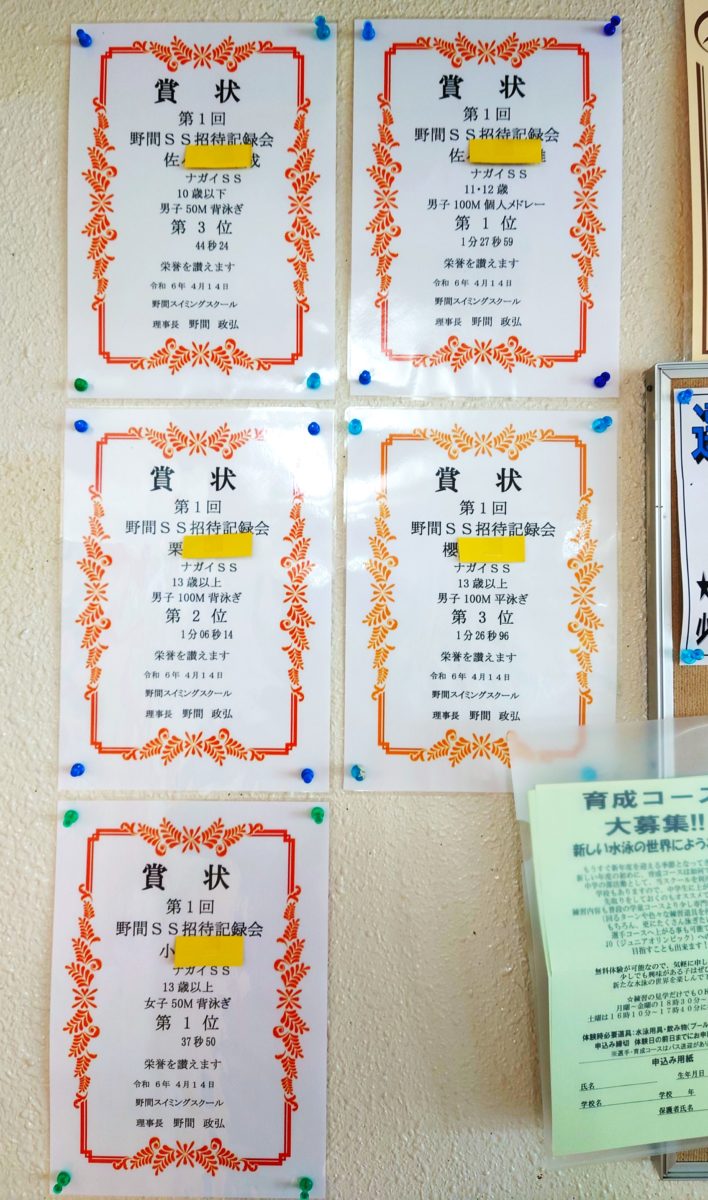 賞 状
第１回
野間ＳＳ招待記録会
佐
ナガイＳＳ
10歳以下
男子50M背泳ぎ
第 3 位
44秒24
栄誉を讃えます
令和 ６年 ４月１４日
野間スイミングスクール
理事長 野間 政弘
賞 状
第１回
野間ＳＳ招待記録会
佐
ナガイＳＳ
11・12歳
男子100M個人メドレー
第 1 位
1分27秒59
栄誉を讃えます
令和 ６年 ４月１４日
野間スイミングスクール
理事長 野間 政弘
賞 状
第１回
野間ＳＳ招待記録会
栗
ナガイＳＳ
13歳以上
男子100M背泳ぎ
第 2 位
1分06秒14
栄誉を讃えます
令和 ６年 ４月１４日
野間スイミングスクール
理事長 野間 政弘
賞 状
第１回
野間ＳＳ招待記録会
櫻
ナガイＳＳ
13歳以上
男子100M平泳ぎ
第 3 位
1分26秒96
栄誉を讃えます
令和 ６年 ４月１４日
野間スイミングスクール
理事長 野間 政弘
賞 状
第１回
野間ＳＳ招待記録会
小
ナガイＳＳ
13歳以上
女子50M背泳ぎ
第 1 位
37秒50
栄誉を讃えます
令和 ６年 ４月１４日
野間スイミングスクール
理事長 野間 政弘
育成コース
大募集!!
新しい水泳の世界にようこ
もうすぐ新年度を迎える季節となってき
無料体験が可能なので、気軽に申し
少しでも興味がある子はぜひ
新たな水泳の世界を楽しんで
☆練習の見学だけでもOK
月曜～金曜の18時30分～
土曜は16時10分～17時40分に
体験時必要道具:水泳用具・飲み物(プール
申込み締切 体験日の前日までにお申
※選手・育成コースはバス送迎があり
申込み用紙
氏名 生年月日
学校名 学校 年
保護者氏名